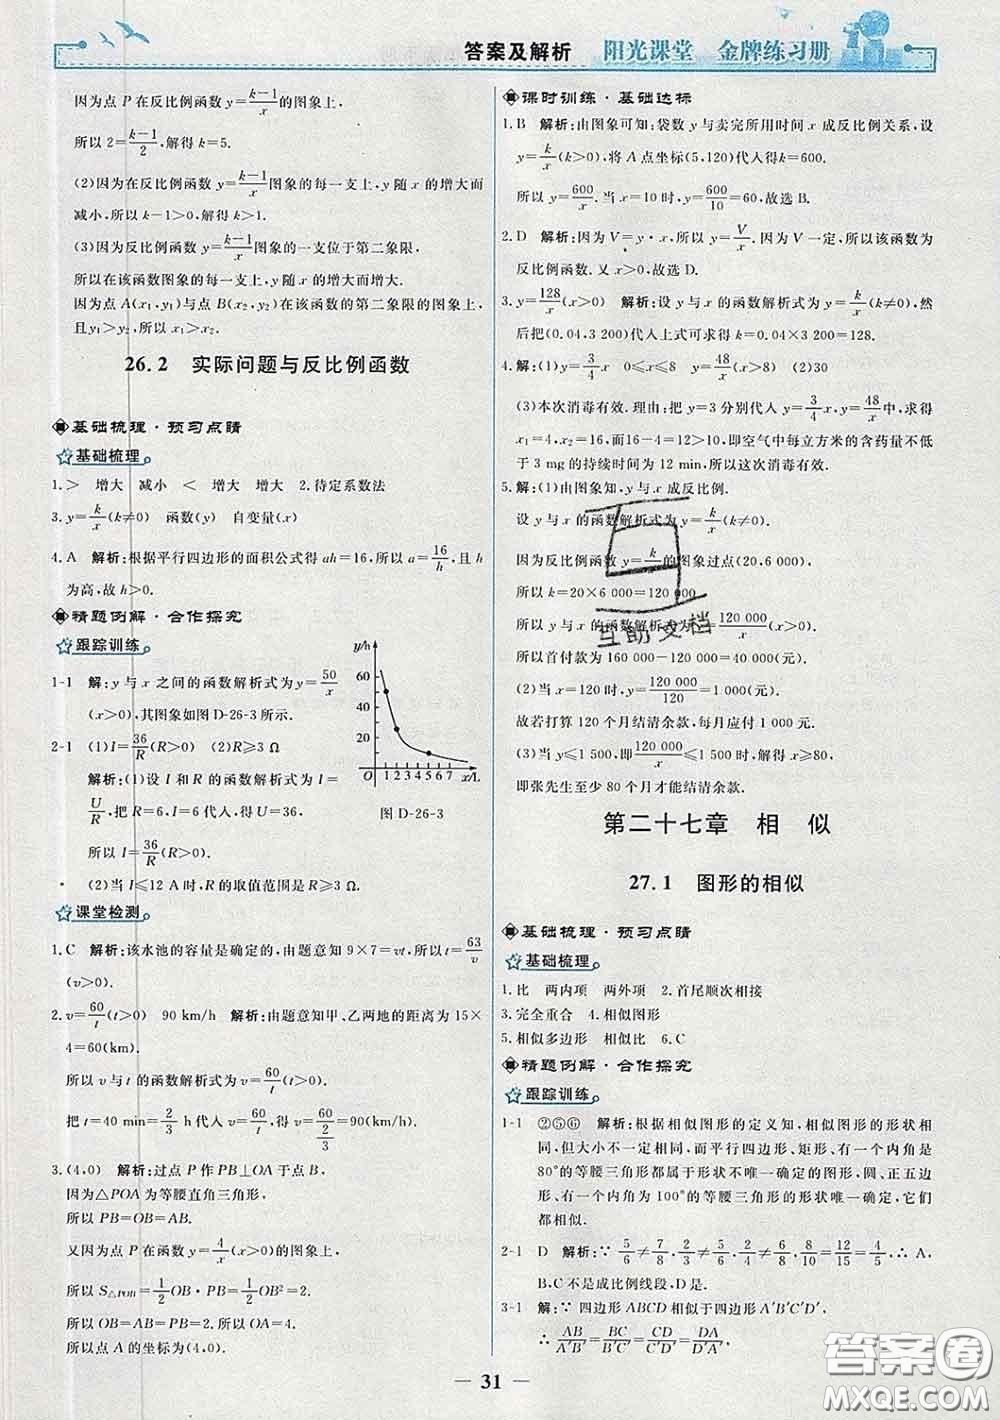 答案及解析 阳光课堂 金牌练习册
因为点 P 在反比例函数 y=(k-1)/x 的图象上,
所以 2=(k-1)/2, 解得 k=5.
(2)因为在反比例函数 y=(k-1)/x 图象的每一支上,y 随 x 的增大而
减小,所以 k-1>0,解得 k>1.
(3)因为反比例函数 y=(k-1)/x 图象的一支位于第二象限,
所以在该函数图象的每一支上,y 随 x 的增大而增大.
因为点 A(x₁,y₁)与点 B(x₂,y₂)在该函数的第二象限的图象上,
且 y₁>y₂,所以 x₁>x₂.
26.2 实际问题与反比例函数
基础梳理·预习点睛
基础梳理
1.> 增大 减小 < 增大 增大 2.待定系数法
3.y=k/x(k≠0) 函数(y) 自变量(x)
4.A 解析:根据平行四边形的面积公式得 ah=16,所以 a=16/h,且 h
为高,故 h>0.
精题例解·合作探究
跟踪训练
1-1 解:y 与 x 之间的函数解析式为 y=50/x
(x>0),其图象如图 D-26-3 所示.
2-1 (1)I=36/R(R>0) (2)R≥3 Ω
解析:(1)设 I 和 R 的函数解析式为 I=
U/R,把 R=6,I=6 代入,得 U=36,
所以 I=36/R(R>0).
(2)当 I≤12 A 时,R 的取值范围是 R≥3 Ω.
y/h
60
40
20
O 1 2 3 4 5 6 7 8 x/L
图 D-26-3
课堂检测
1.C 解析:该水池的容量是确定的,由题意知 9×7=vt,所以 t=63/v
(v>0).
2.v=60/t(t>0) 90 km/h 解析:由题意知甲、乙两地的距离为 15×
4=60(km).
所以 v 与 t 的函数解析式为 v=60/t(t>0).
把 t=40 min=2/3 h 代入 v=60/t,得 v=60/(2/3)=90.
3.(4,0) 解析:过点 P 作 PB⊥OA 于点 B,
因为△POA 为等腰直角三角形,
所以 PB=OB=AB.
又因为点 P 在函数 y=4/x(x>0)的图象上,
所以 S△POB=1/2 OB·PB=1/2 OB²=2.
所以 OB=AB=PB=2,所以 OA=4.
所以点 A 的坐标为(4,0).
课时训练·基础达标
1.B 解析:由图象可知:袋数 y 与卖完所用时间 x 成反比例关系,设
y=k/x(k>0),将 A 点坐标(5,120)代入得 k=600.
所以 y=600/x.当 x=10 时,y=600/10=60,故选 B.
2.D 解析:因为 V=y·x,所以 y=V/x.因为 V 一定,所以该函数为
反比例函数.又 x>0,故选 D.
3.y=128/x(x>0) 解析:设 y 与 x 的函数解析式为 y=k/x(k≠0),然
后把(0.04,3 200)代入上式可求得 k=0.04×3 200=128.
4.解:(1)y=3/4 x 0≤x≤8 y=48/x(x>8) (2)30
(3)本次消毒有效.理由:把 y=3 分别代入 y=3/4 x,y=48/x,求得
x₁=4,x₂=16,而 16-4=12>10,即空气中每立方米的含药量不低
于 3 mg 的持续时间为 12 min,所以这次消毒有效.
5.解:(1)由图象知,y 与 x 成反比例.
设 y 与 x 的函数解析式为 y=k/x(k≠0).
因为反比例函数 y=k/x 的图象过点(20,6 000),
所以 k=20×6 000=120 000.
所以 y 与 x 的函数解析式为 y=120 000/x(x>0).
所以首付款为 160 000-120 000=40 000(元).
(2)当 x=120 时,y=120 000/120=1 000(元).
故若打算 120 个月结清余款,每月应付 1 000 元.
(3)当 y≤1 500,即 120 000/x≤1 500 时,解得 x≥80,
即张先生至少 80 个月才能结清余款.
第二十七章 相 似
27.1 图形的相似
基础梳理·预习点睛
基础梳理
1.比 两内项 两外项 2.首尾顺次相接
3.完全重合 4.相似图形
5.相似多边形 相似比 6.C
精题例解·合作探究
跟踪训练
1-1 ②⑤⑥ 解析:根据相似图形的定义知,相似图形的形状相
同,但大小不一定相同,而平行四边形、矩形、有一个内角为
80°的等腰三角形都属于形状不唯一确定的图形,圆、正五边
形、有一个内角为 100°的等腰三角形的形状唯一确定,它们
都相似.
2-1 D 解析:∵ 5/6≠7/8,2/3≠7/8,2/3≠6/8,8/10=12/15=4/5,∴ A,
B,C 不是成比例线段,D 是.
3-1 解:∵ 四边形 ABCD 相似于四边形 A′B′C′D′,
∴ AB/A′B′=BC/B′C′=CD/C′D′=DA/D′A′,
— 31 —
互助文档
答案圈
MXQE.COM